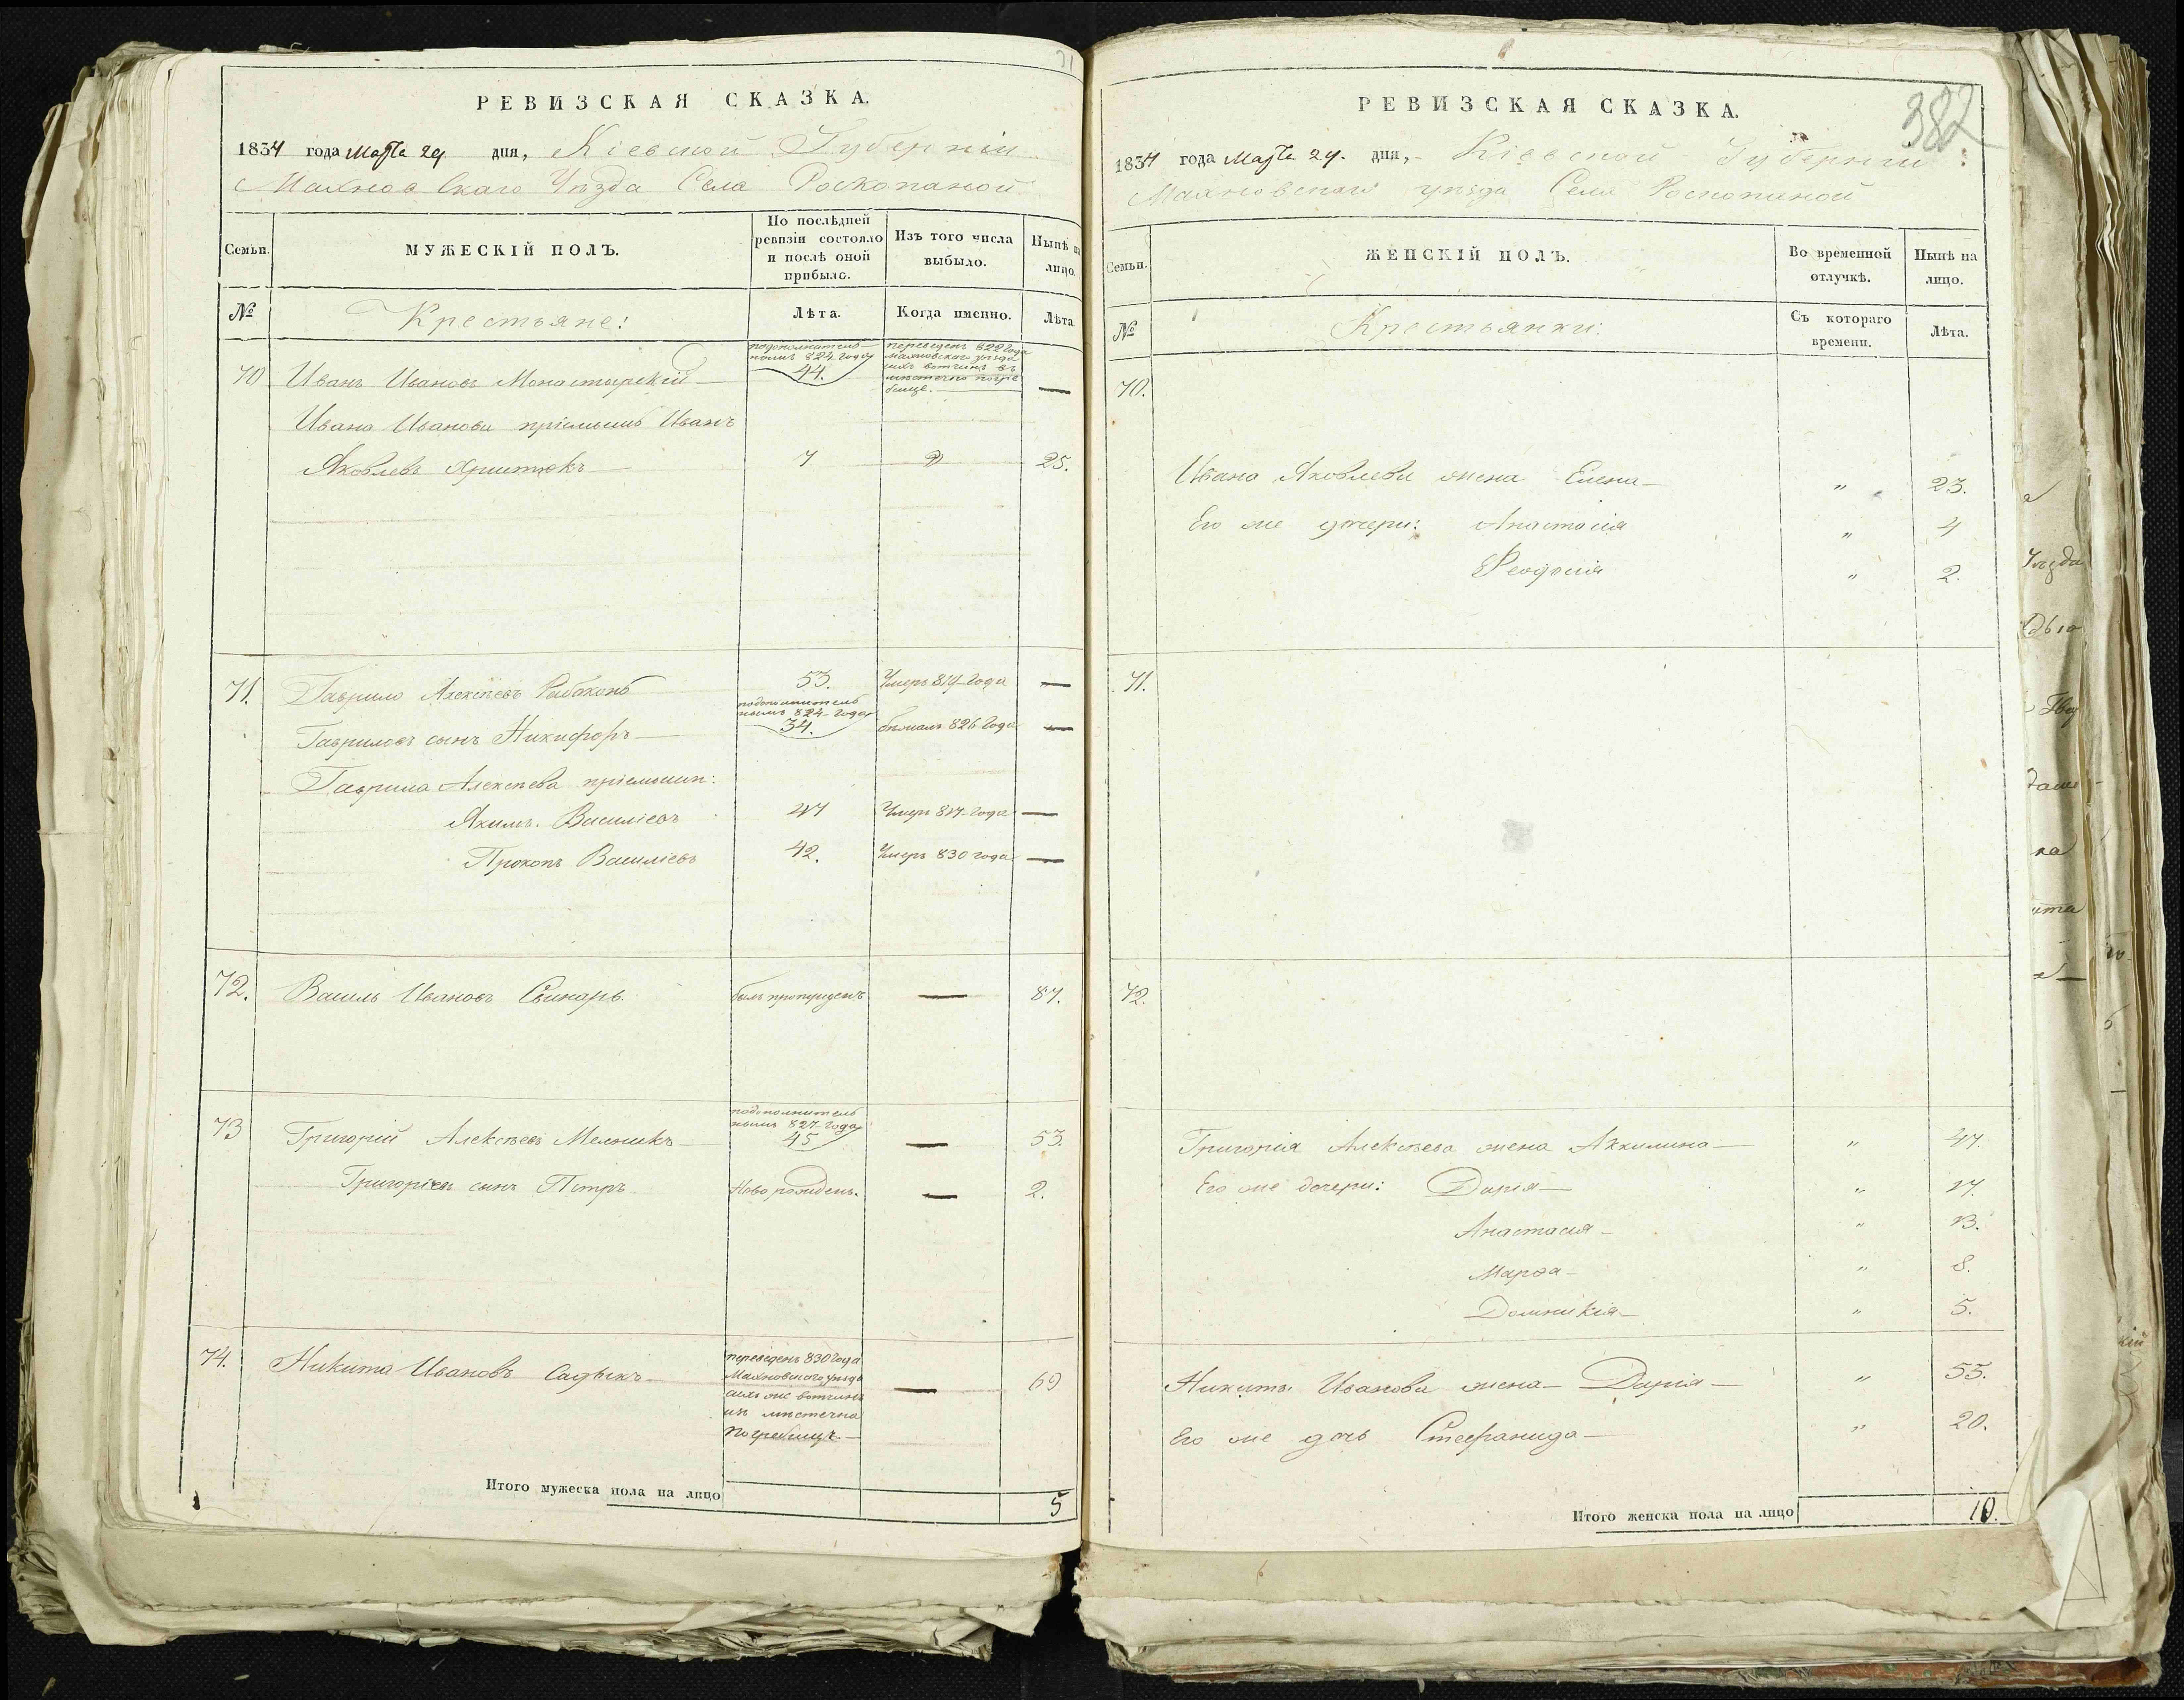 РЕВИЗСКАЯ СКАЗКА.
1834 года Марта 29 дня, Кіевской Губерніи
Махновскаго Уѣзда Села Роскопаной
Семьи.
МУЖЕСКІЙ ПОЛЪ.
По послѣдней ревизіи состояло и послѣ оной прибыло.
Изъ того числа выбыло.
Нынѣ на лицо.
№
Крестьяне:
Лѣта.
Когда именно.
Лѣта.
70 Иванъ Ивановъ Монастырскій подополнительнымъ 824 года 44. переведенъ 822 года Махновского уѣзда сихъ вотчинъ въ мѣстечко погребище. —
Ивана Иванова пріемышъ Иванъ
Яковлевъ 7 25.
71. Гаврило Алексѣевъ 53. Умеръ 817 года —
Гавриловъ сынъ Никифоръ подополнительнымъ 824 года 34. бѣжалъ 826 года —
Гаврила Алексѣева пріемыши:
Якимъ Василіевъ 47 Умеръ года —
Прокопъ Василіевъ 42. Умеръ 830 года —
72. Василь Ивановъ Свинарь былъ пропущенъ — 87.
73 Григорій Алексѣевъ Мельникъ подополнительнымъ 827 года 45 — 53.
Григоріевъ сынъ Петръ Новорожденъ. — 2.
74. Никита Ивановъ Садыкъ переведенъ 830 года Махновского уѣзда сихъ же вотчинъ изъ мѣстечка Погребищъ. — 69
Итого мужеска пола на лицо 5
РЕВИЗСКАЯ СКАЗКА.
382
1834 года Марта 29. дня, Кіевской Губерніи:
Махновскаго уѣзда Села Роскопаной
Семьи.
ЖЕНСКІЙ ПОЛЪ.
Во временной отлучкѣ.
Нынѣ на лицо.
№
Крестьянки:
Съ котораго времени.
Лѣта.
70.
Ивана Яковлева жена Елена — " 23.
Его же дочери: Анастасія " 4
Феодосія " 2.
71.
72.
Григорія Алексѣева жена Акилина — " 47.
Его же дочери: Дарія — " 17.
Анастасія — " 13.
Марѳа — " 8.
Домникія — " 5.
Никиты Иванова жена — Дарія — " 55.
Его же дочь Стефанида — " 20.
Итого женска пола на лицо 10.